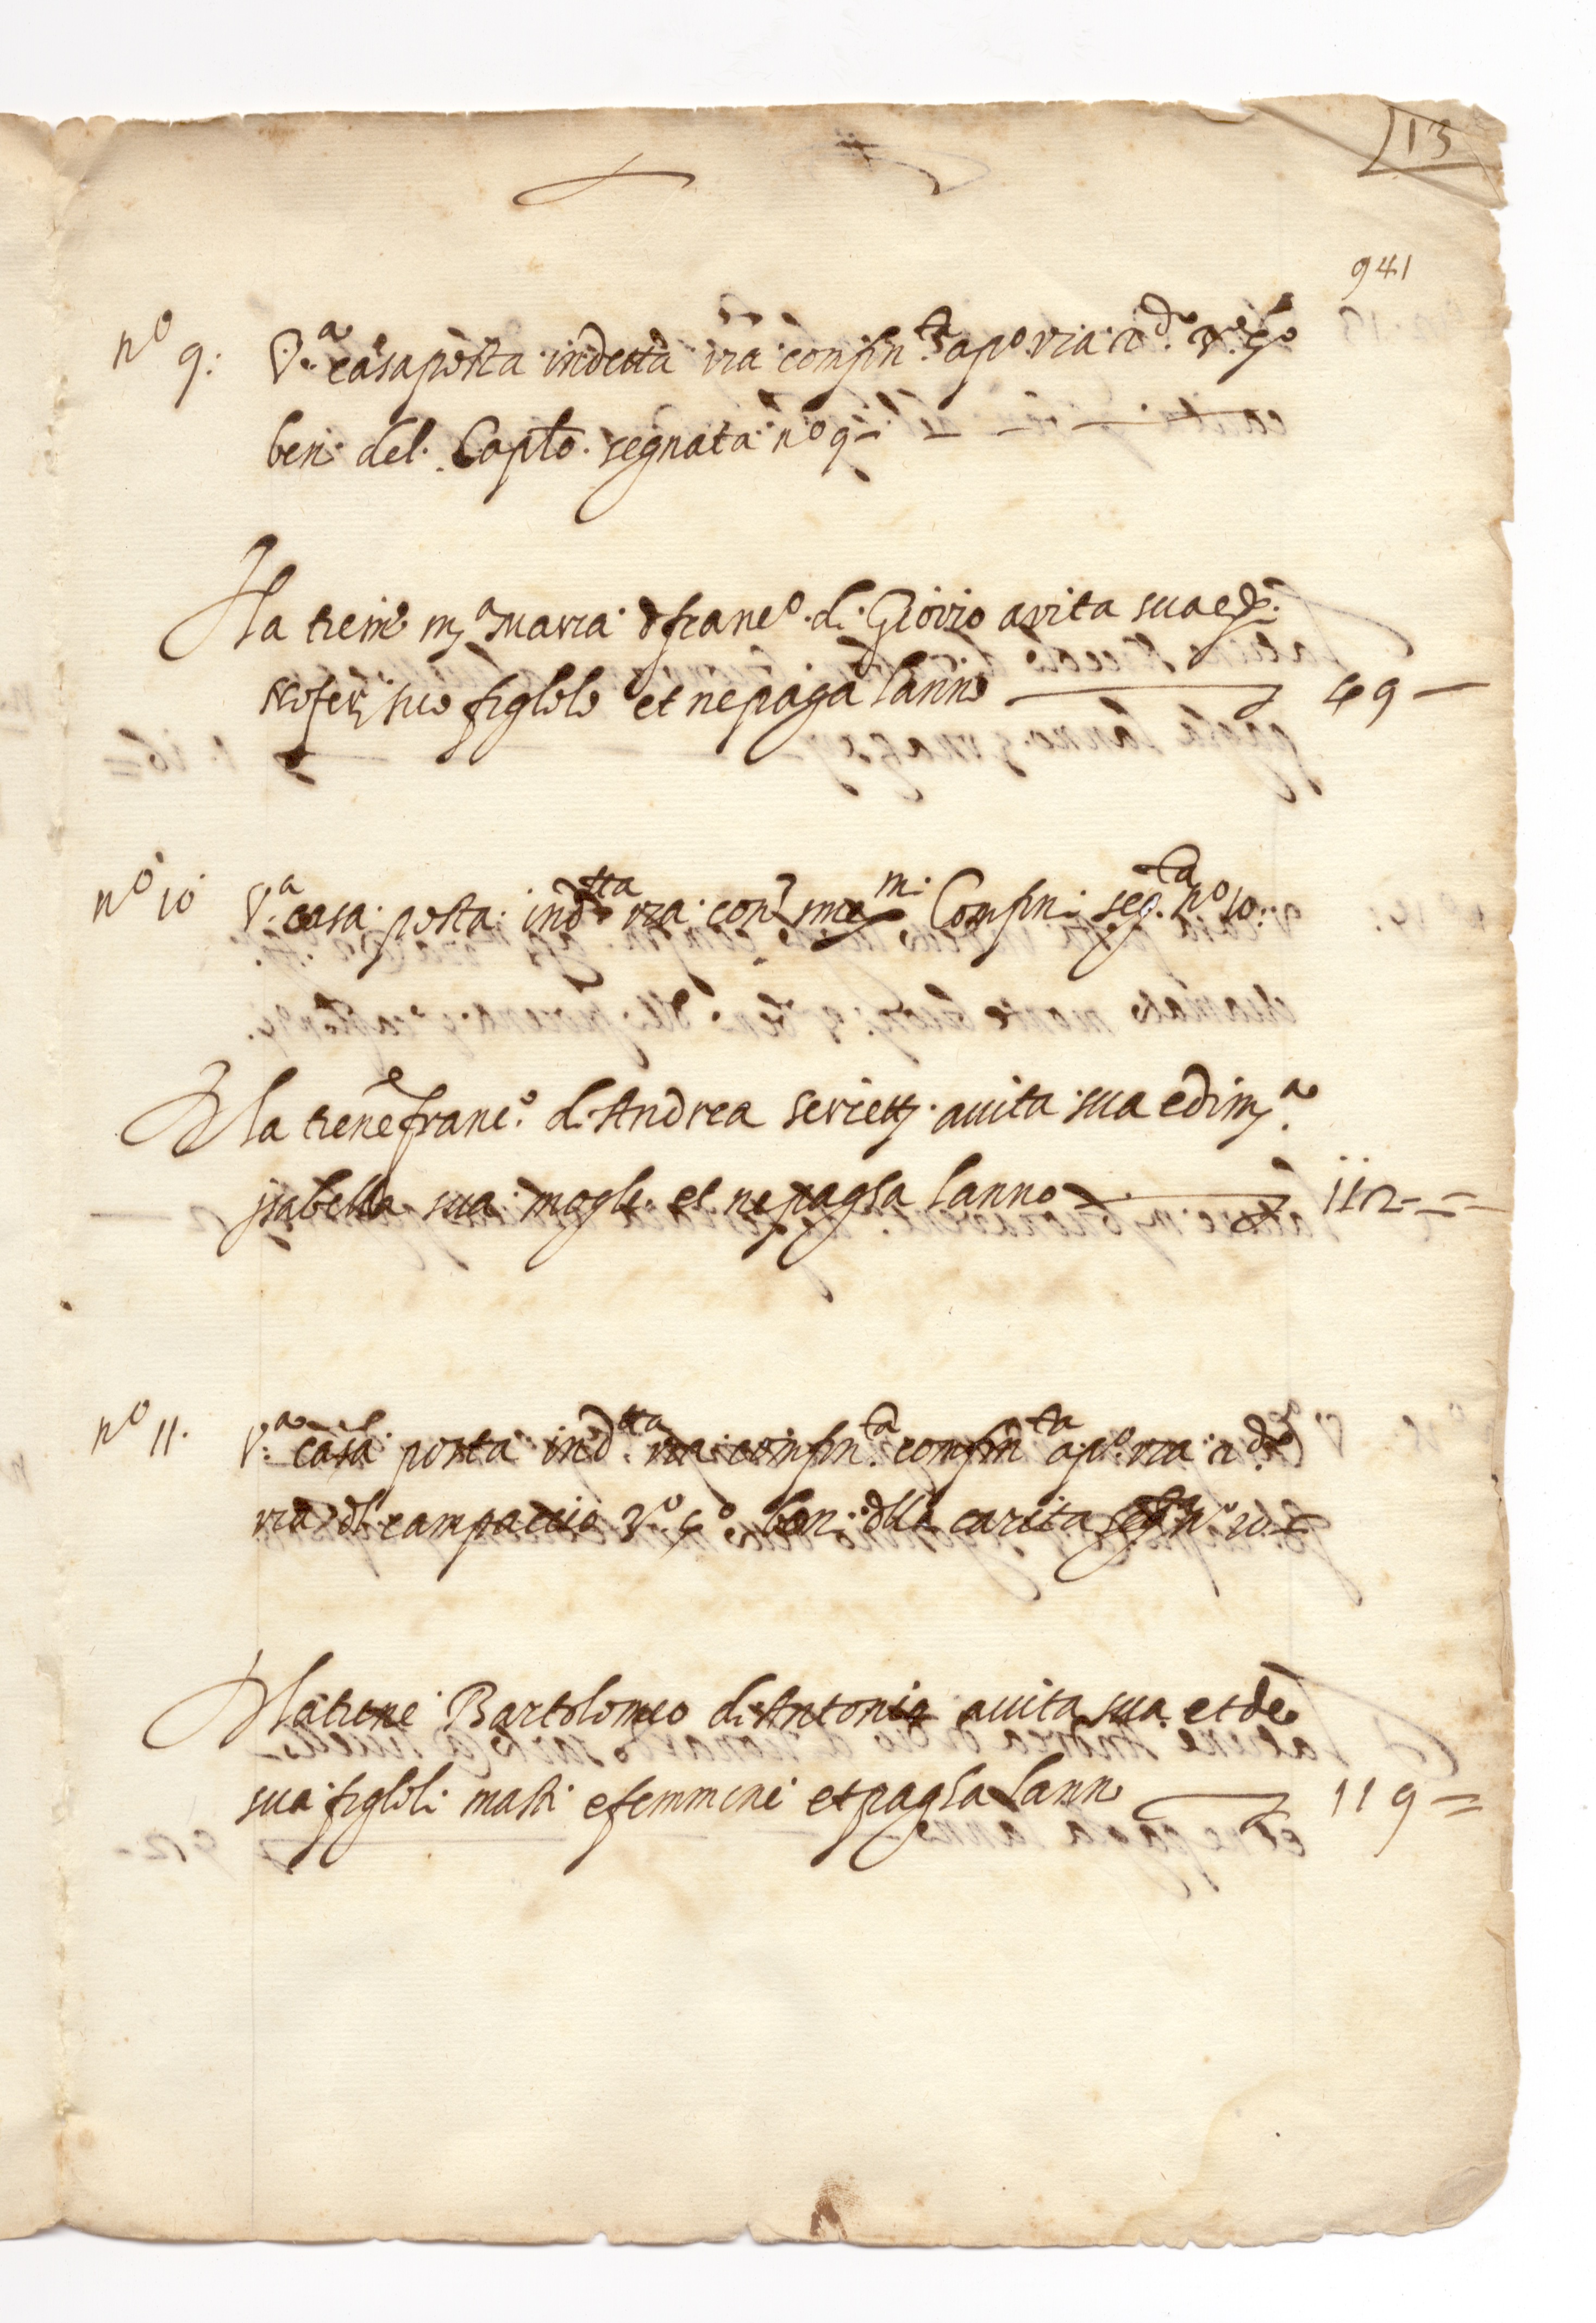 13
941
nº 9: V.ª casa posta in detta via confin.ta a pº via 2.do 3º 4º
ben. del. Caplo. segnata nº 9 —
la tiene m.ª Maria d franc.º di Giovio a vita sua e di
suo figlolo et ne paga lanno 49 —
nº 10 V.ª casa posta in d.tta via con med.mi Confini seg.ta nº 10:
la tiene franc.º d. Andrea serietti a vita sua e di m.ª
isabella sua mogle et ne pagha lanno 112 — =
nº 11. V.ª casa posta in d.tta via confin.ta confin.ta a pº via 2.do
via dl campaccio 3º 4º ben: dlla carita seg.ta nº
la tiene Bartolomeo di Antonio a vita sua et de
sua figloli masti e femmine et pagha lann 119 =